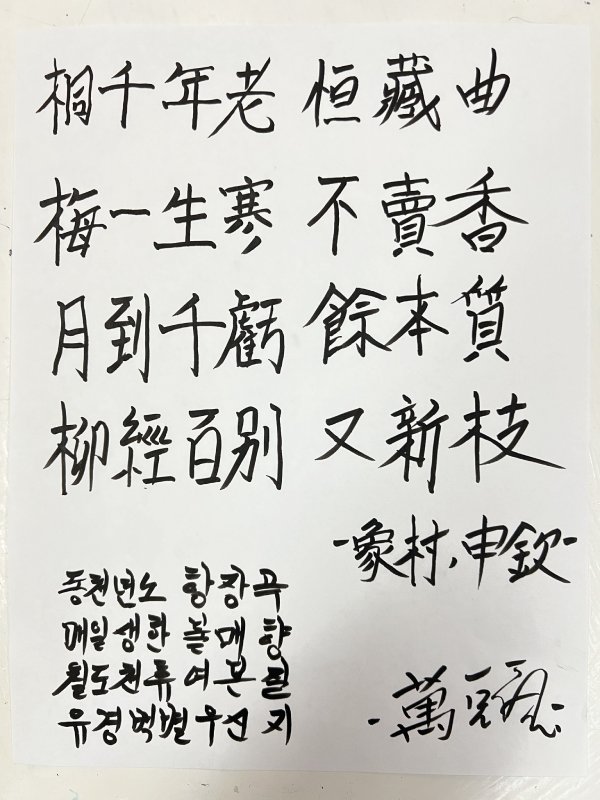 桐千年老 恒藏曲
梅一生寒 不賣香
月到千虧 餘本質
柳經百別 又新枝
-象村, 申欽-
동천년노 항장곡
매일생한 불매향
월도천휴 여본질
유경백별 우신지
-萬